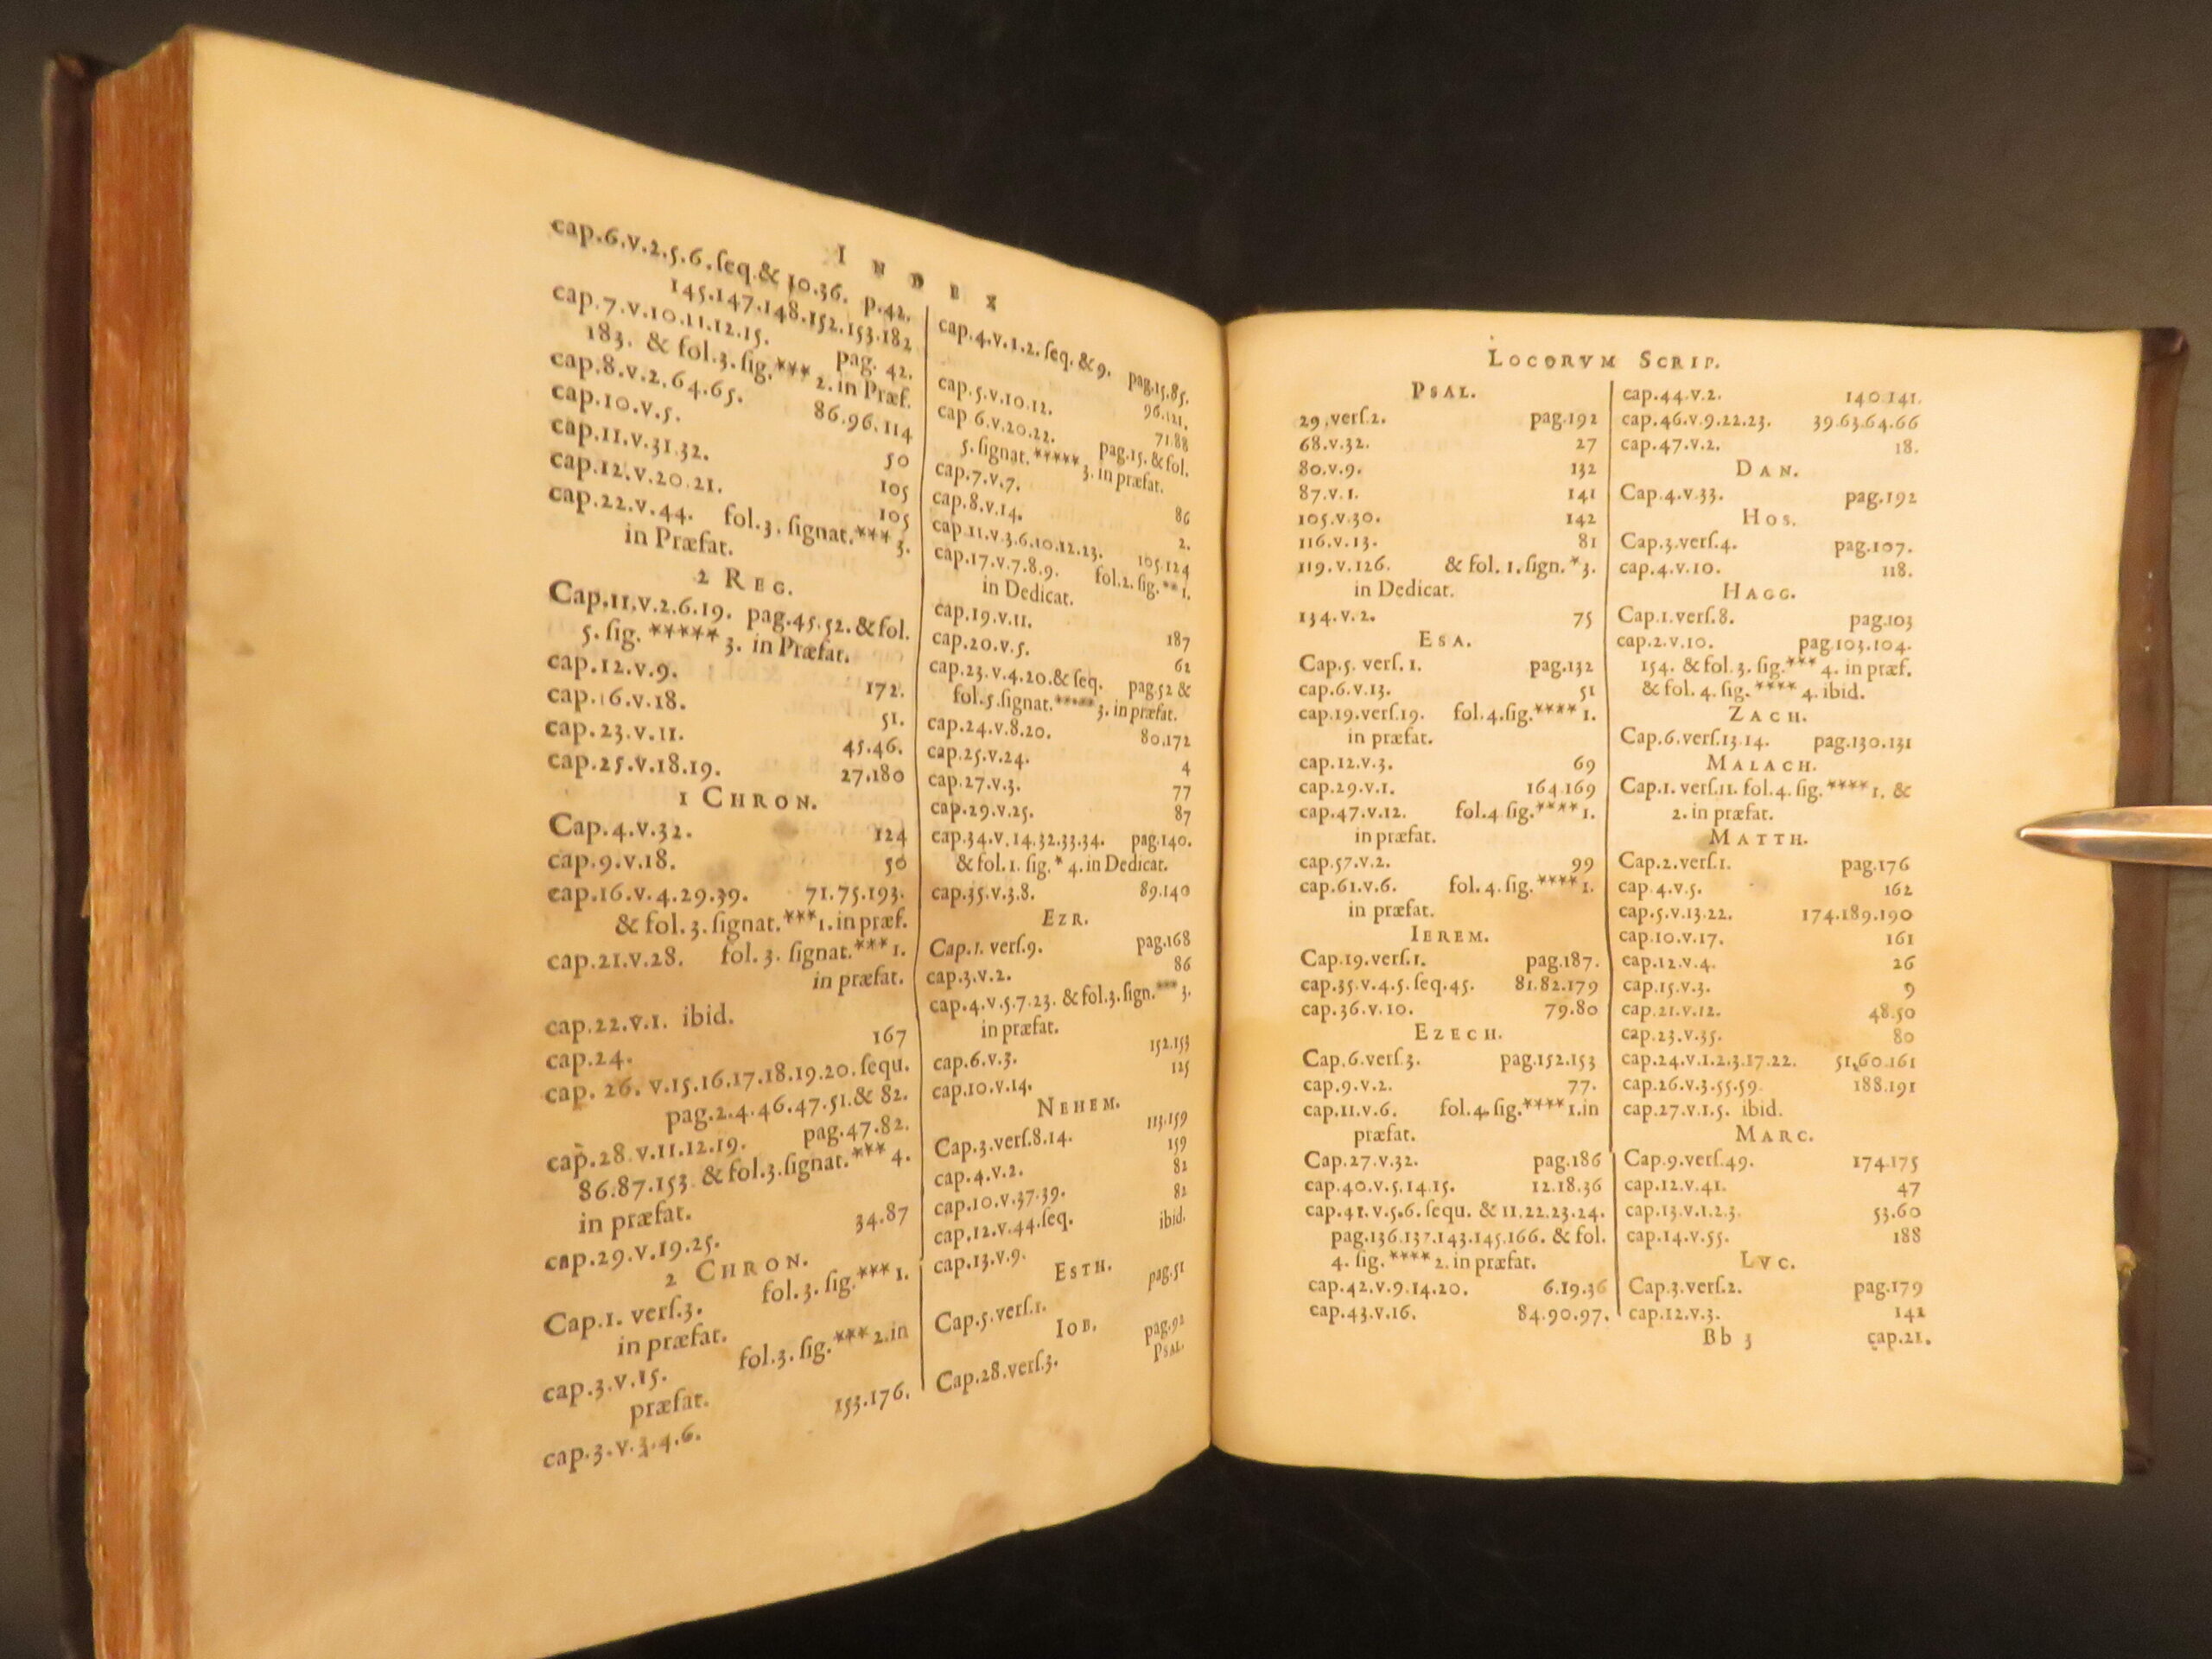 INDEX
cap.6.v.2.5.6.ſeq.& 10.36. p.42.
145.147.148.152.153.182
cap.7.v.10.11.12.15. pag. 42.
183. & fol.3.ſig.*** 2.in Præf.
cap.8.v.2.64.65. 86.96.114
cap.10.v.5. 50
cap.11.v.31.32. 105
cap.12.v.20.21. 105
cap.22.v.44. fol.3.ſignat.*** 3.
in Præfat.
2 REG.
Cap.11.v.2.6.19. pag.45.52.&fol.
5.ſig. ***** 3. in Præfat.
cap.12.v.9. 172.
cap.16.v.18. 51.
cap.23.v.11. 45.46.
cap.25.v.18.19. 27.180
1 CHRON.
Cap.4.v.32. 124
cap.9.v.18. 50
cap.16.v.4.29.39. 71.75.193.
& fol.3.ſignat.***1.in præf.
cap.21.v.28. fol.3. ſignat.*** 1.
in præfat.
cap.22.v.1. ibid.
cap.24. 167
cap. 26. v.15.16.17.18.19.20.ſequ.
pag.2.4.46.47.51.& 82.
cap.28.v.11.12.19. pag.47.82.
86.87.153. &fol.3.ſignat.*** 4.
in præfat.
cap.29.v.19.25. 34.87
2 CHRON.
Cap.1. verſ.3. fol.3.ſig.*** 1.
in præfat.
cap.3.v.15. fol.3.ſig.*** 2.in
præfat.
cap.3.v.3.4.6. 153.176.
cap.4.v.1.2. ſeq. & 9. pag.15.85.
96.121.
cap.5.v.10.12. 71.88
cap 6.v.20.22. pag.15.&fol.
5.ſignat.***** 3. in præfat.
cap.7.v.7. 86
cap.8.v.14. 2.
cap.11.v.3.6.10.12.13. 105.124
cap.17.v.7.8.9. fol.2.ſig.** 1.
in Dedicat.
cap.19.v.11. 187
cap.20.v.5. 62
cap.23.v.4.20.& ſeq. pag.52 &
fol.5.ſignat.***** 3. in præfat.
cap.24.v.8.20. 80.172
cap.25.v.24. 4
cap.27.v.3. 77
cap.29.v.25. 87
cap.34.v.14.32.33.34. pag.140.
& fol.1. ſig.* 4.in Dedicat.
cap.35.v.3.8. 89.140
EZR.
Cap.1. verſ.9. pag.168
cap.3.v.2. 86
cap.4.v.5.7.23. &fol.3.ſign.*** 3.
in præfat.
cap.6.v.3. 152.153
cap.10.v.14. 125
NEHEM.
Cap.3.verſ.8.14. 113.159
cap.4.v.2. 159
cap.10.v.37.39. 82
cap.12.v.44.ſeq. 82
cap.13.v.9. ibid.
ESTH.
Cap.5.verſ.1. pag.51
IOB.
Cap.28.verſ.3. pag.92
PSAL.
LOCORVM SCRIP.
PSAL.
29.verſ.2. pag.192
68.v.32. 27
80.v.9. 132
87.v.1. 141
105.v.30. 142
116.v.13. 81
119.v.126. & fol. 1. ſign. * 3.
in Dedicat.
134.v.2. 75
ESA.
Cap.5. verſ. 1. pag.132
cap.6.v.13. 51
cap.19.verſ.19. fol.4.ſig.**** 1.
in præfat.
cap.12.v.3. 69
cap.29.v.1. 164.169
cap.47.v.12. fol.4 ſig.**** 1.
in præfat.
cap.57.v.2. 99
cap.61.v.6. fol.4.ſig.**** 1.
in præfat.
IEREM.
Cap.19.verſ.1. pag.187.
cap.35.v.4.5.ſeq.45. 81.82.179
cap.36.v.10. 79.80
EZECH.
Cap.6.verſ.3. pag.152.153
cap.9.v.2. 77.
cap.11.v.6. fol.4.ſig.**** 1.in
præfat.
Cap.27.v.32. pag.186
cap.40.v.5.14.15. 12.18.36
cap.41.v.5.6. ſequ. & 11.22.23.24.
pag.136.137.143.145.166. & fol.
4. ſig.**** 2. in præfat.
cap.42.v.9.14.20. 6.19.36
cap.43.v.16. 84.90.97.
cap.44.v.2. 140.141.
cap.46.v.9.22.23. 39.63.64.66
cap.47.v.2. 18.
DAN.
Cap.4.v.33. pag.192
HOS.
Cap.3.verſ.4. pag.107.
cap.4.v.10. 118.
HAGG.
Cap.1.verſ.8. pag.103
cap.2.v.10. pag.103.104.
154. & fol.3. ſig.*** 4. in præf.
& fol. 4. ſig.**** 4. ibid.
ZACH.
Cap.6.verſ.13.14. pag.130.131
MALACH.
Cap.1. verſ.11. fol.4. ſig.**** 1. &
2. in præfat.
MATTH.
Cap.2.verſ.1. pag.176
cap.4.v.5. 162
cap.5.v.13.22. 174.189.190
cap.10.v.17. 161
cap.12.v.4. 26
cap.15.v.3. 9
cap.21.v.12. 48.50
cap.23.v.35. 80
cap.24.v.1.2.3.17.22. 51.60.161
cap.26.v.3.55.59. 188.191
cap.27.v.1.5. ibid.
MARC.
Cap.9.verſ.49. 174.175
cap.12.v.41. 47
cap.13.v.1.2.3. 53.60
cap.14.v.55. 188
LVC.
Cap.3.verſ.2. pag.179
cap.12.v.3. 142
Bb 3 cap.21.